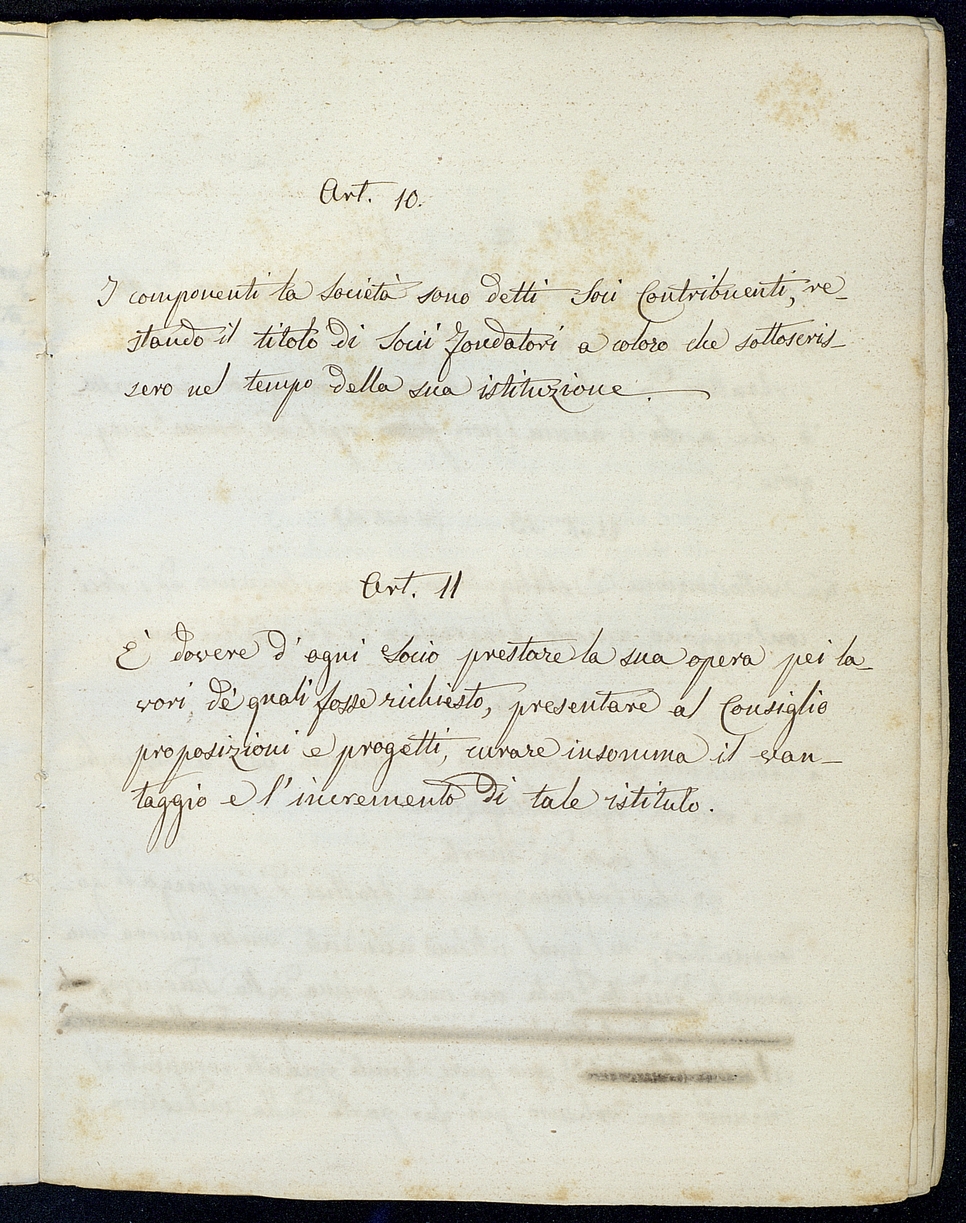 Art. 10.
I componenti la Società sono detti Soci Contribuenti, re-
stando il titolo di Socii fondatori a coloro che sottoscris-
sero nel tempo della sua istituzione.
Art. 11
E' dovere d' ogni Socio prestare la sua opera pei la-
vori de' quali fosse richiesto, presentare al Consiglio
proposizioni e progetti, curare insomma il van-
taggio e l' incremento di tale istituto.